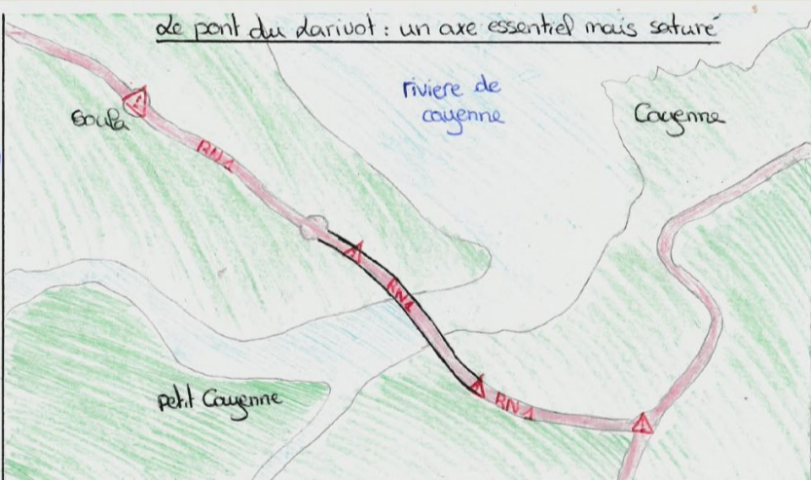 Le pont du Larivot : un axe essentiel mais saturé
rivière de
cayenne
Cayenne
Soula
RN1
RN1
petit Cayenne
RN1